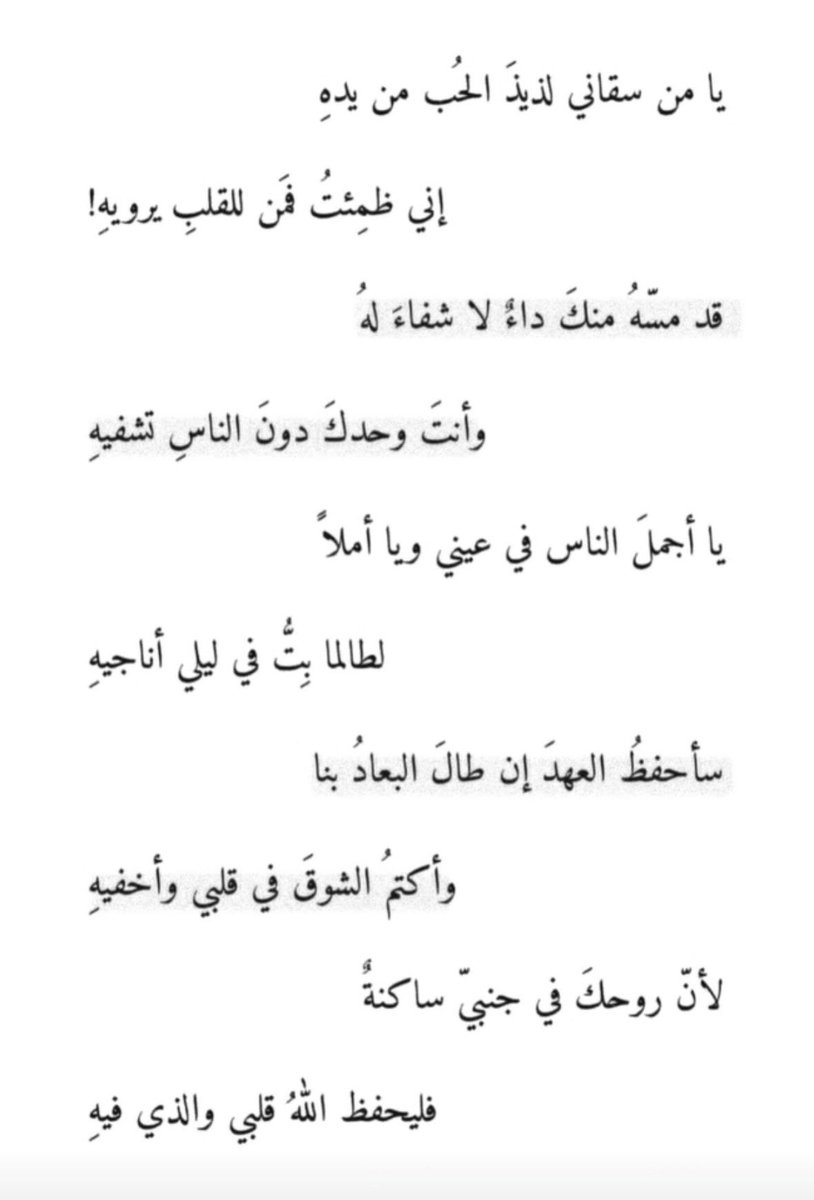 يا من سقاني لذيذَ الحُب من يدهِ
إني ظمِئتُ فمَن للقلبِ يرويهِ!
قد مسّهُ منكَ داءٌ لا شفاءَ لهُ
وأنتَ وحدكَ دونَ الناسِ تشفيهِ
يا أجملَ الناس في عيني ويا أملاً
لطالما بِتُّ في ليلي أناجيهِ
سأحفظُ العهدَ إن طالَ البعادُ بنا
وأكتمُ الشوقَ في قلبي وأخفيهِ
لأنّ روحكَ في جنبيّ ساكنةٌ
فليحفظ اللهُ قلبي والذي فيهِ